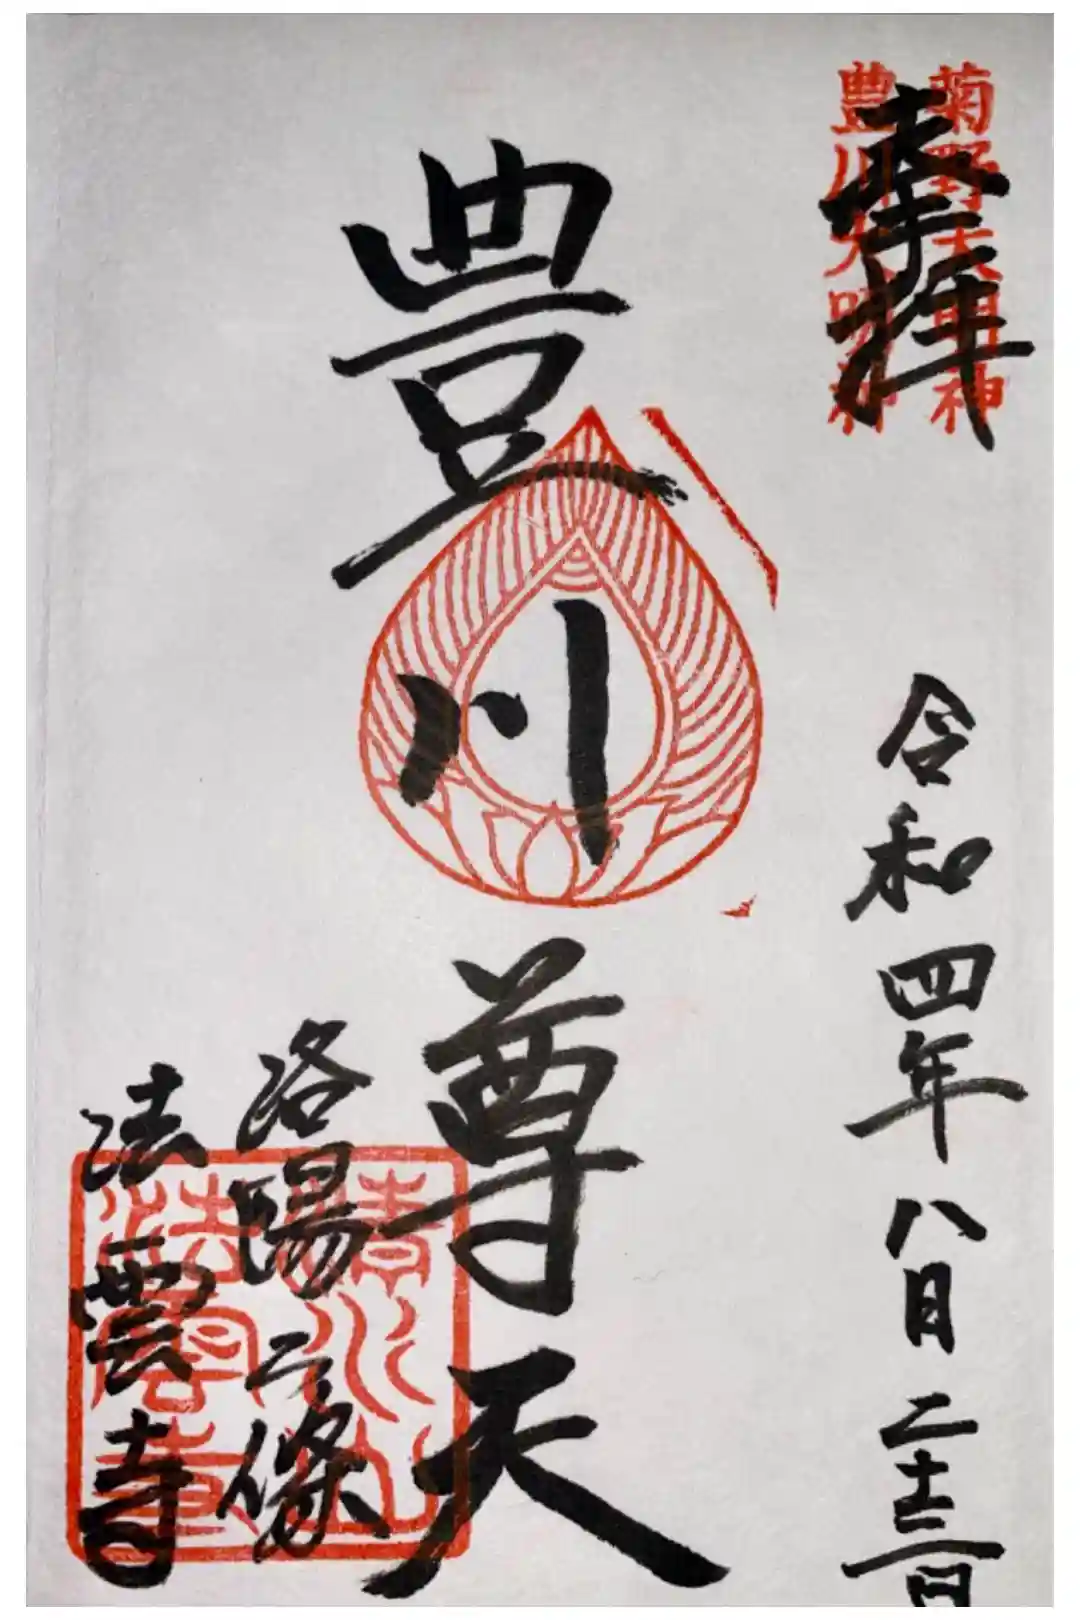 奉拝
菊野大明神
豊川大明神
令和四年八月二十三日
豊川尊天
洛陽二條
法雲寺
清水山
法雲寺